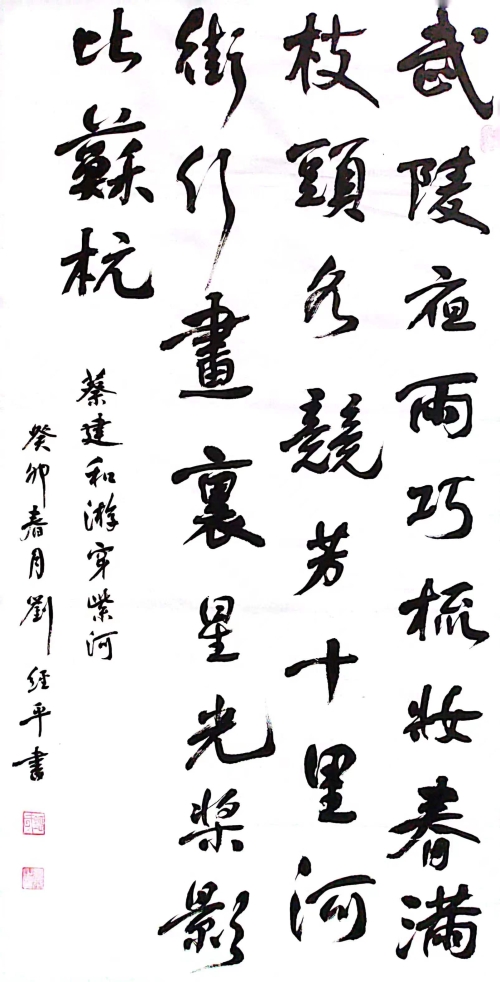 武陵夜雨巧梳妝春滿
枝頭各競芳十里河
街行畫裏星光槳影
比蘇杭
蔡建和游穿紫河
癸卯春月劉經平書